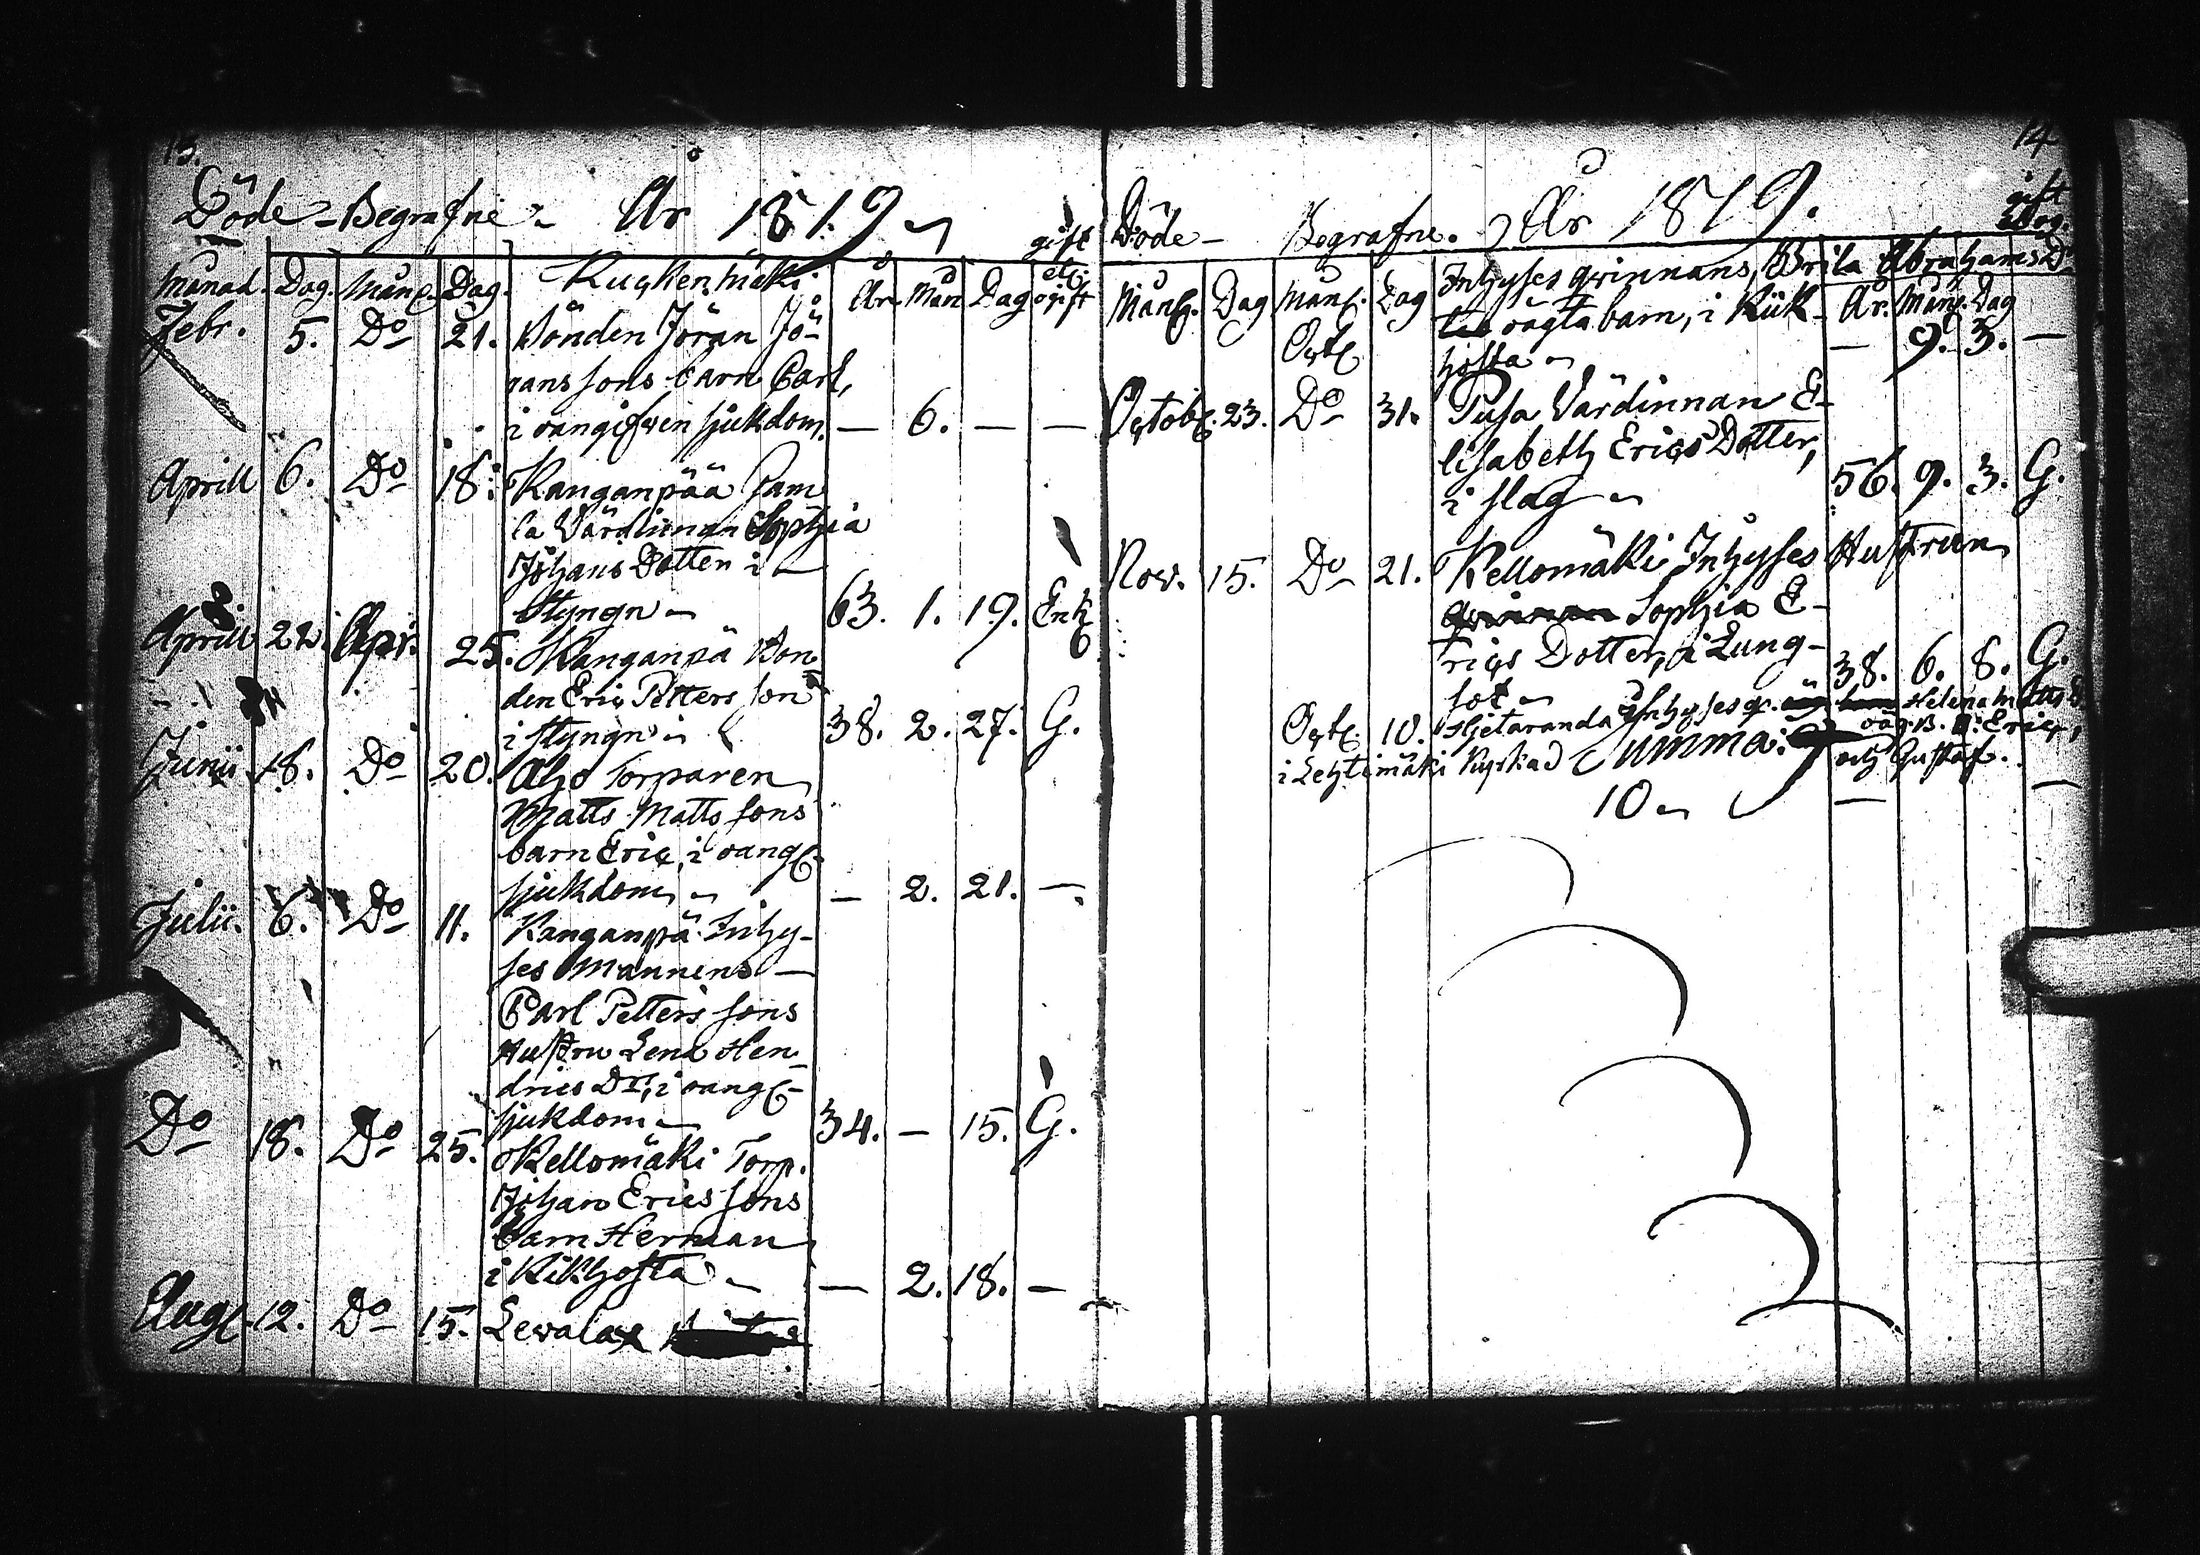 13.
Döde - Begrafne - År 1819
gift
Månad. Dag. Mång. Dag. Kuckenmäki År. Mån Dag ogift
Febr. 5. Do 21. Bönden Jöran Jö-
ranssons barn Carl,
i oangifven sjukdom. — 6. — —
Aprill 6. Do 18. Kanganpää Gam
la Värdinnan Sophia
Johans Dotter i
styngn 63. 1. 19. Enk
Aprill 22. Apr. 25. Kanganpä Bon
den Eric Petters son
i styngn 38. 2. 27. G.
Junii 18. Do 20. Aho Torparen
Matts Mattssons
barn Eric, i oang.
sjukdom — 2. 21. —.
Julii. 6. Do 11. Kanganpä Inhy-
ses Mannens
Carl Petters sons
Hustru Lena Hen
drics Dr, i oang.
sjukdom 34. — 15. G.
Do 18. Do 25. Kellomäki Torp.
Johan Ericssons
barn Herman
i Kikhosta — 2. 18. —
Aug. 12. Do 15. Levala
14
Döde - Begrafne. År 1819.
gift
Inhyses qvinnans, Brita Abrahams D.
Mån. Dag Mån. Dag oägta barn, i Kik- År. Mån. Dag
Oct. hosta — 9. 3. —
Octob. 23. Do 31. Pusa Värdinnan E-
lisabeth Erics Dotter,
i slag 56. 9. 3. G.
Nov. 15. Do 21. Kellomäki Inhyses Hustrun
Sophia E-
rics Dotter, i Lung-
sot 38. 6. 8. G.
Oct. 10. Hjetaranda Inhyses q. Helena Matts D
oäg. B. Eric,
i Lehtimäki Kyrkad Summa: och Gustaf.
10 — —